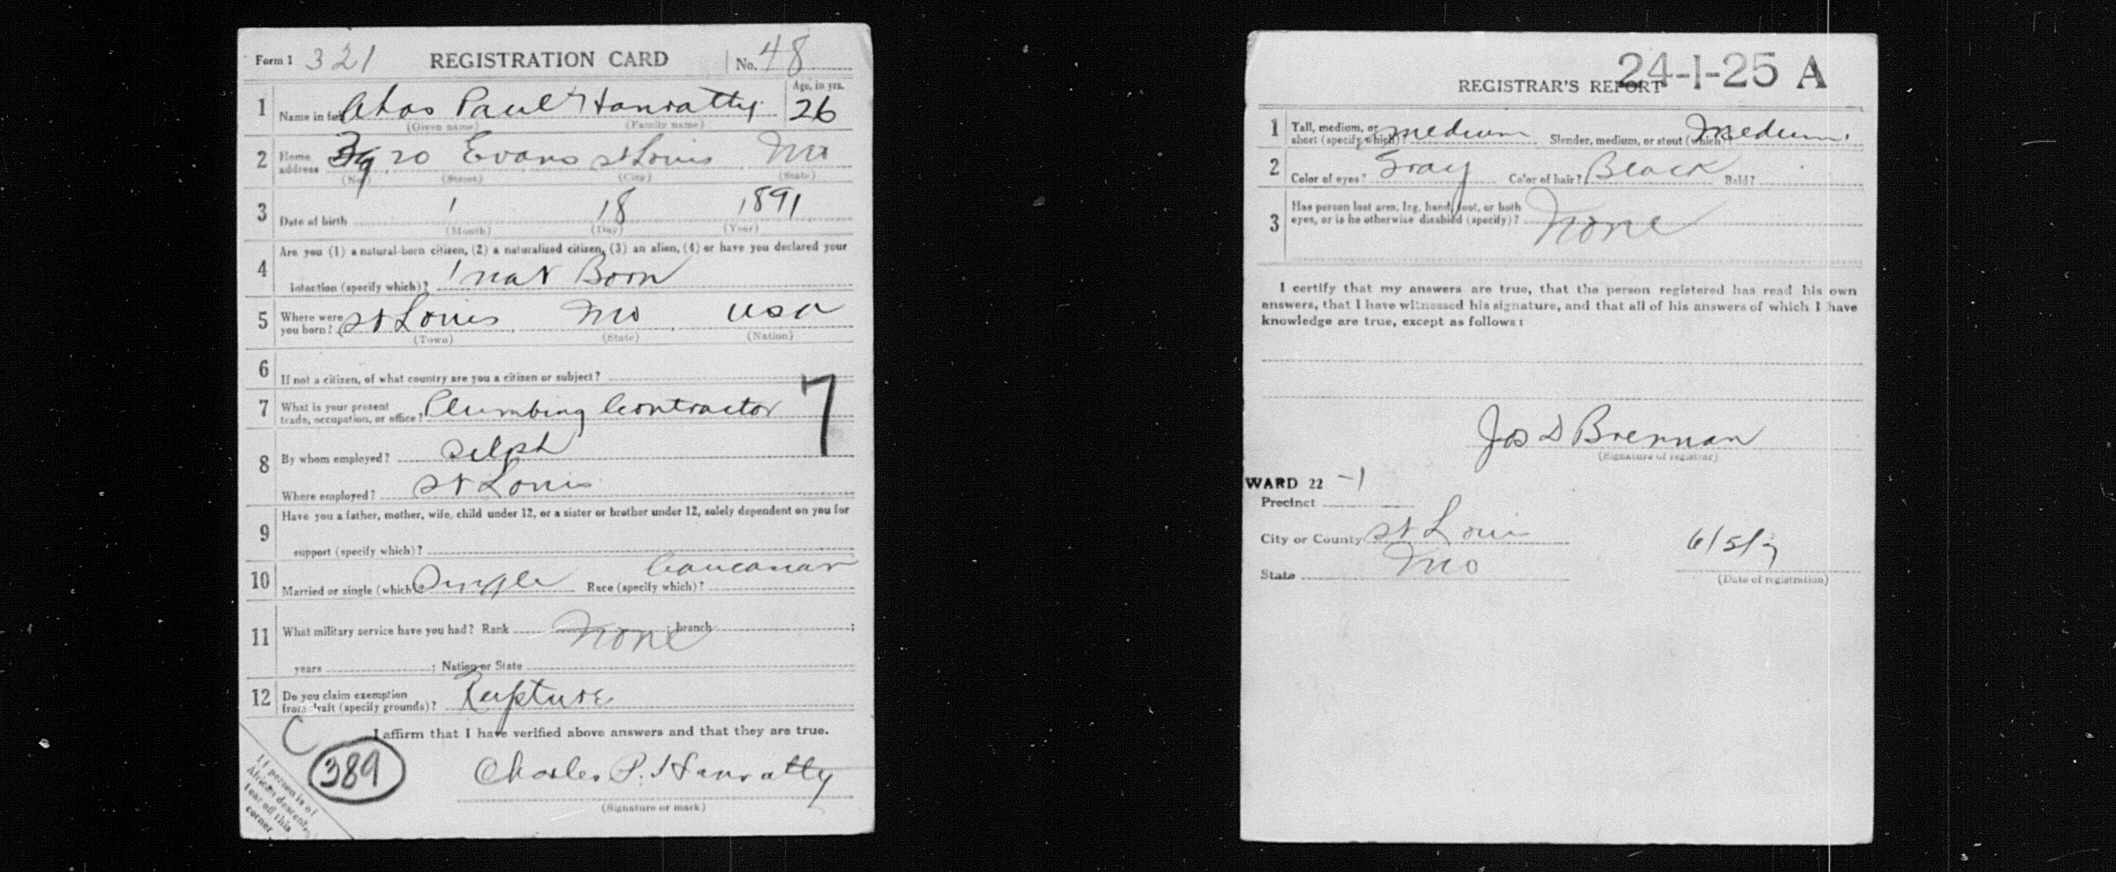 Form 1 321 REGISTRATION CARD No. 48
1 Name in full Chas Paul Hanratty Age, in yrs. 26
(Given name) (Family name)
2 Home address 3920 Evans St Louis Mo
(No.) (Street) (City) (State)
3 Date of birth 1 18 1891
(Month) (Day) (Year)
4 Are you (1) a natural-born citizen, (2) a naturalized citizen, (3) an alien, (4) or have you declared your
intention (specify which)? 1 nat Born
5 Where were you born? St Louis Mo USA
(Town) (State) (Nation)
6 If not a citizen, of what country are you a citizen or subject?
7 What is your present trade, occupation, or office? Plumbing Contractor 7
8 By whom employed? Selph
Where employed? St Louis
9 Have you a father, mother, wife, child under 12, or a sister or brother under 12, solely dependent on you for
support (specify which)?
10 Married or single (which) Single Race (specify which)? Caucasian
11 What military service have you had? Rank None ; branch ;
years ; Nation or State
12 Do you claim exemption from draft (specify grounds)? Rupture
I affirm that I have verified above answers and that they are true.
C 389
Charles P. Hanratty
(Signature or mark)
If person is of
African descent,
tear off this
corner
24-1-25 A
REGISTRAR'S REPORT
1 Tall, medium, or short (specify which)? medium Slender, medium, or stout (which)? Medium
2 Color of eyes? Gray Color of hair? Black Bald?
3 Has person lost arm, leg, hand, foot, or both
eyes, or is he otherwise disabled (specify)? None
I certify that my answers are true, that the person registered has read his own
answers, that I have witnessed his signature, and that all of his answers of which I have
knowledge are true, except as follows:
Jos D Brennan
(Signature of registrar)
WARD 22 -1
Precinct
City or County St Louis 6/5/7
State Mo (Date of registration)